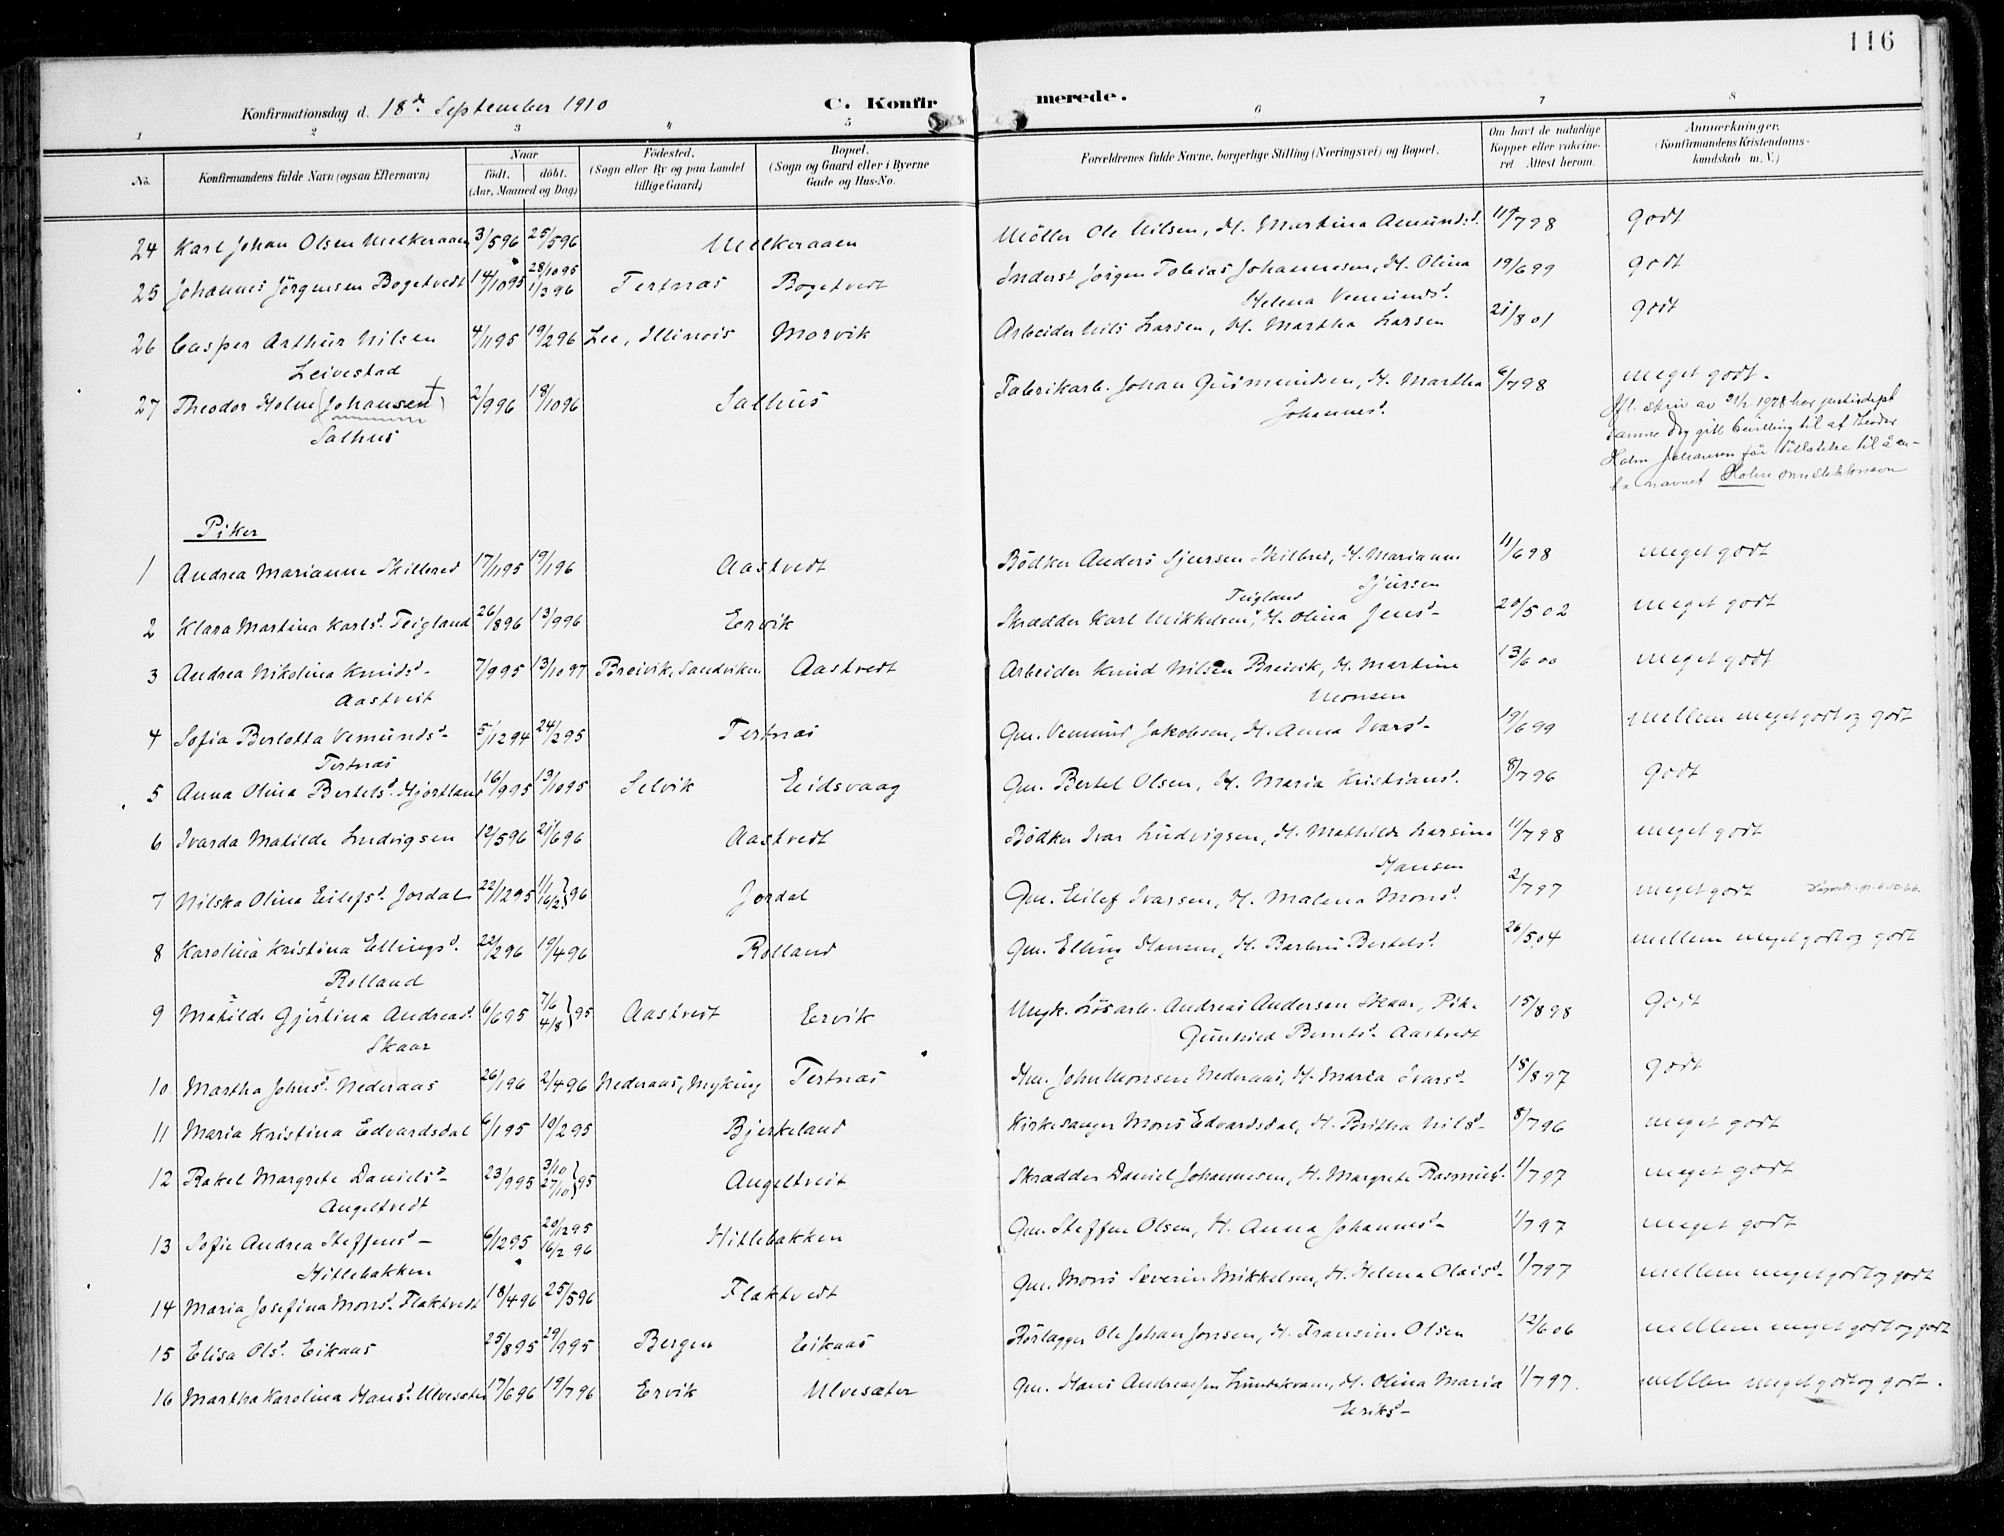 116
Konfirmationsdag d. 18de September 1910
C. Konfirmerede.
1 2 3 4 5 6 7 8
No. Konfirmandens fulde Navn (ogsaa Efternavn) Naar født, døbt. (Aar, Maaned og Dag) Fødested. (Sogn eller By og paa Landet tillige Gaard) Bopæl. (Sogn og Gaard eller i Byerne Gade og Hus-No. Forældrenes fulde Navne, borgerlige Stilling (Næringsvei) og Bopæl. Om havt de naturlige Kopper eller vakcineret. Attest herom. Anmærkninger. (Konfirmandens Kristendomskundskab m. V.)
24 Karl Johan Olsen Melkeraaen 3/5 96 25/5 96 Melkeraaen Möller Ole Nilsen, H. Martina Amundsd. 11/7 98 godt
25 Johannes Jörgensen Bogetvedt 14/10 95 28/10 95 1/3 96 Tertnas Bogetvedt Inderst Jörgen Tobias Johannesen, H. Olina 19/6 99 godt
Helena Vemundsd.
26 Casper Arthur Nilsen 4/11 95 19/2 96 Lee, Illinois Morvik Arbeider Nils Larsen, H. Martha Larsen 21/8 01 godt
Leivestad
27 Theodor Holm (Johansen) + 2/9 96 18/10 96 Salhus Fabrikarb. Johan Gudmundsen, H. Martha 6/7 98 meget godt.
Salhus Johannesd.
Ifl. skriv av 21/2 1928 har justisdept
samme dag gitt bevilling til at Theodor
Holm Johansen får tillatelse til å an-
ta navnet Holm som slektsnavn
Piker
1 Andrea Marianne Skilbred 17/11 95 19/1 96 Aastvedt Bödker Anders Sjursen Skilbred, H. Marianne 11/6 98 meget godt
Sjursen
2 Klara Martina Karlsd. Teigland 26/8 96 13/9 96 Ervik Skrædder Karl Mikkelsen Teigland, H. Olina Jensd. 20/5 02 meget godt
3 Andrea Nikolina Knudsd. 7/9 95 13/10 97 Breivik, Sandviken Aastvedt Arbeider Knud Nilsen Breivik, H. Martine 13/6 00 meget godt
Aastvedt Monsen
4 Sofia Berlotta Vemundsd. 5/12 94 24/2 95 Tertnas Gm. Vemund Jakobsen, H. Anna Ivarsd. 19/6 99 mellem meget godt og godt
Tertnas
5 Anna Olina Bertelsd. Hjortland 16/9 95 13/10 95 Selvik Eidsvaag Gm. Bertel Olsen, H. Maria Kristiansd. 8/7 96 godt
6 Ivarda Matilde Ludvigsen 12/5 96 21/6 96 Aastvedt Bödker Ivar Ludvigsen, H. Mathilde Larsine 11/7 98 meget godt
Hansen
7 Nilska Olina Eilefsd. Jordal 22/12 95 1/1 16/2 } 96 Jordal Gm. Eilef Ivarsen, H. Malena Monsd. 2/7 97 meget godt
8 Karolina Kristina Ellingsd. 22/2 96 19/4 96 Rolland Gm. Elling Hansen, H. Barbru Bertelsd. 26/5 04 mellem meget godt og godt
Rolland
9 Matilde Gjertina Andreasd. 6/6 95 7/6 4/8 } 95 Aastvedt Ervik Ungk. Lösarb. Andreas Andersen Skaar, Pike 15/8 98 godt
Skaar Gunhild Berntsd. Aastvedt
10 Martha Johnsd. Nederaas 26/1 96 2/4 96 Nederaas, Myking Tertnas Hm. John Monsen Nederaas, H. Maria Ivarsd. 18/8 97 godt
11 Maria Kristina Edvardsdal 6/1 95 10/2 95 Bjerkeland Kirkesanger Mons Edvardsdal, H. Britha Nilsd. 8/7 96 meget godt
12 Rakel Margrete Danielsd. 23/9 95 3/10 27/10 } 95 Angeltvedt Skrædder Daniel Johannesen, H. Margrete Rasmusd. 1/7 97 meget godt
Angeltvedt
13 Sofie Andrea Steffensd. 6/12 95 20/12 95 16/2 96 Hitlebakken Gm. Steffen Olsen, H. Anna Johannesd. 1/7 97 meget godt
Hitlebakken
14 Maria Josefina Monsd. Flaktvedt 18/4 96 25/5 96 Flaktvedt Gm. Mons Severin Mikkelsen, H. Helena Olaisd. 1/7 97 mellem meget godt og godt
15 Elisa Olsd. Eikaas 25/8 95 29/9 95 Bergen Eikaas Rörlægger Ole Johan Jonsen, H. Fransine Olsen 12/6 06 mellem meget godt og godt
16 Martha Karolina Hansd. Ulvesæter 17/6 96 19/7 96 Ervik Ulvesæter Gm. Hans Andreassen Lundekvam, H. Olina Maria 1/7 97. mellem meget godt og godt.
Eriksd.